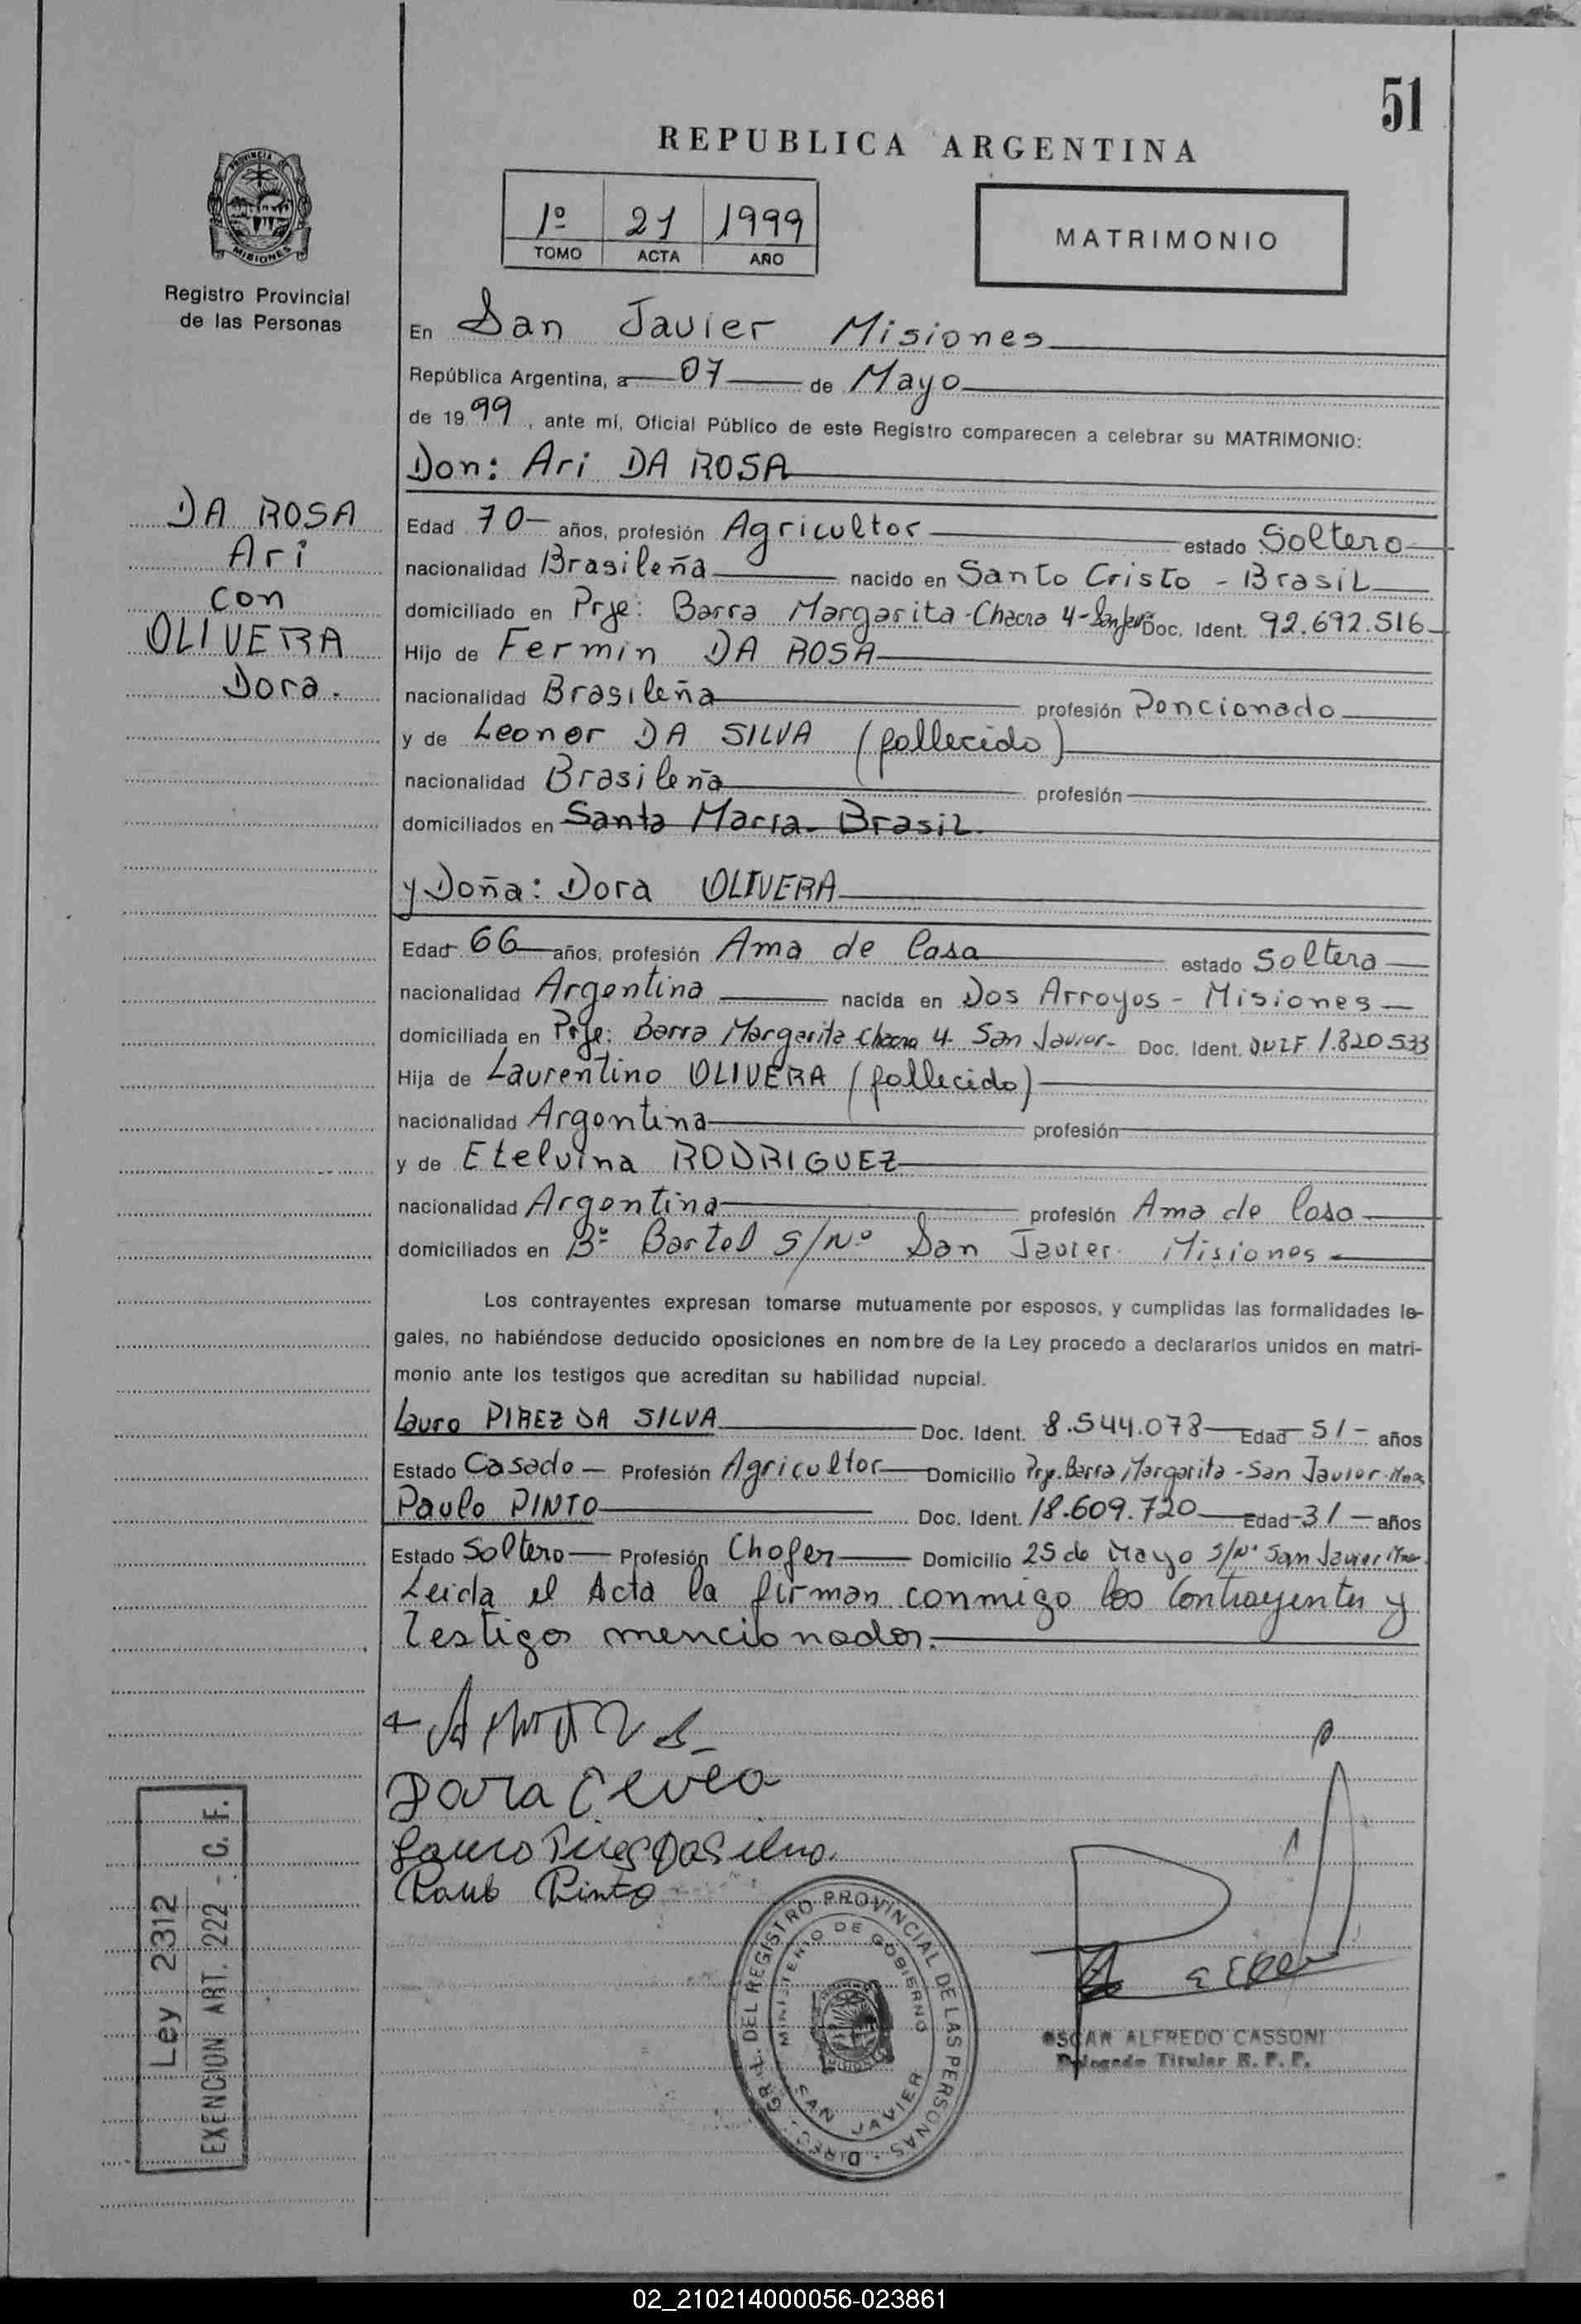 51
REPUBLICA ARGENTINA
PROVINCIA DE
MISIONES
Registro Provincial
de las Personas
1º 21 1999
TOMO ACTA AÑO
MATRIMONIO
En San Javier Misiones
República Argentina, a 07 de Mayo
de 1999, ante mí, Oficial Público de este Registro comparecen a celebrar su MATRIMONIO:
Don: Ari DA ROSA
DA ROSA
Ari
con
OLIVERA
Dora.
Edad 70 años, profesión Agricultor estado Soltero
nacionalidad Brasileña nacido en Santo Cristo - Brasil
domiciliado en Prje: Barra Margarita - Chacra 4 - Doc. Ident. 92.692.516
Hijo de Fermin DA ROSA
nacionalidad Brasileña profesión Poncionado
y de Leonor DA SILVA (fallecido)
nacionalidad Brasileña profesión
domiciliados en Santa Maria - Brasil.
y Doña: Dora OLIVERA
Edad 66 años, profesión Ama de Casa estado Soltera
nacionalidad Argentina nacida en Dos Arroyos - Misiones
domiciliada en Prje: Barra Margarita Chacra 4 - San Javier - Doc. Ident. 1.820.533
Hija de Laurentino OLIVERA (fallecido)
nacionalidad Argentina profesión
y de Etelvina RODRIGUEZ
nacionalidad Argentina profesión Ama de Casa
domiciliados en Bº Bartel S/Nº San Javier. Misiones
Los contrayentes expresan tomarse mutuamente por esposos, y cumplidas las formalidades le-
gales, no habiéndose deducido oposiciones en nombre de la Ley procedo a declararlos unidos en matri-
monio ante los testigos que acreditan su habilidad nupcial.
Lauro PIREZ DA SILVA Doc. Ident. 8.544.078 Edad 51 años
Estado Casado Profesión Agricultor Domicilio Prje. Barra Margarita - San Javier - Mnes
Paulo PINTO Doc. Ident. 18.609.720 Edad 31 años
Estado Soltero Profesión Chofer Domicilio 25 de Mayo S/Nº San Javier Mnes.
Leida el Acta la firman conmigo los Contrayentes y
Testigos mencionados.
Lauro Pires Da Silva
Paulo Pinto
Ley 2312
EXENCION ART. 222 - C. F.
DIREC. GRAL. DEL REGISTRO PROVINCIAL DE LAS PERSONAS
MINISTERIO DE GOBIERNO
SAN JAVIER
OSCAR ALFREDO CASSONI
Delegado Titular R. P. P.
02_210214000056-023861